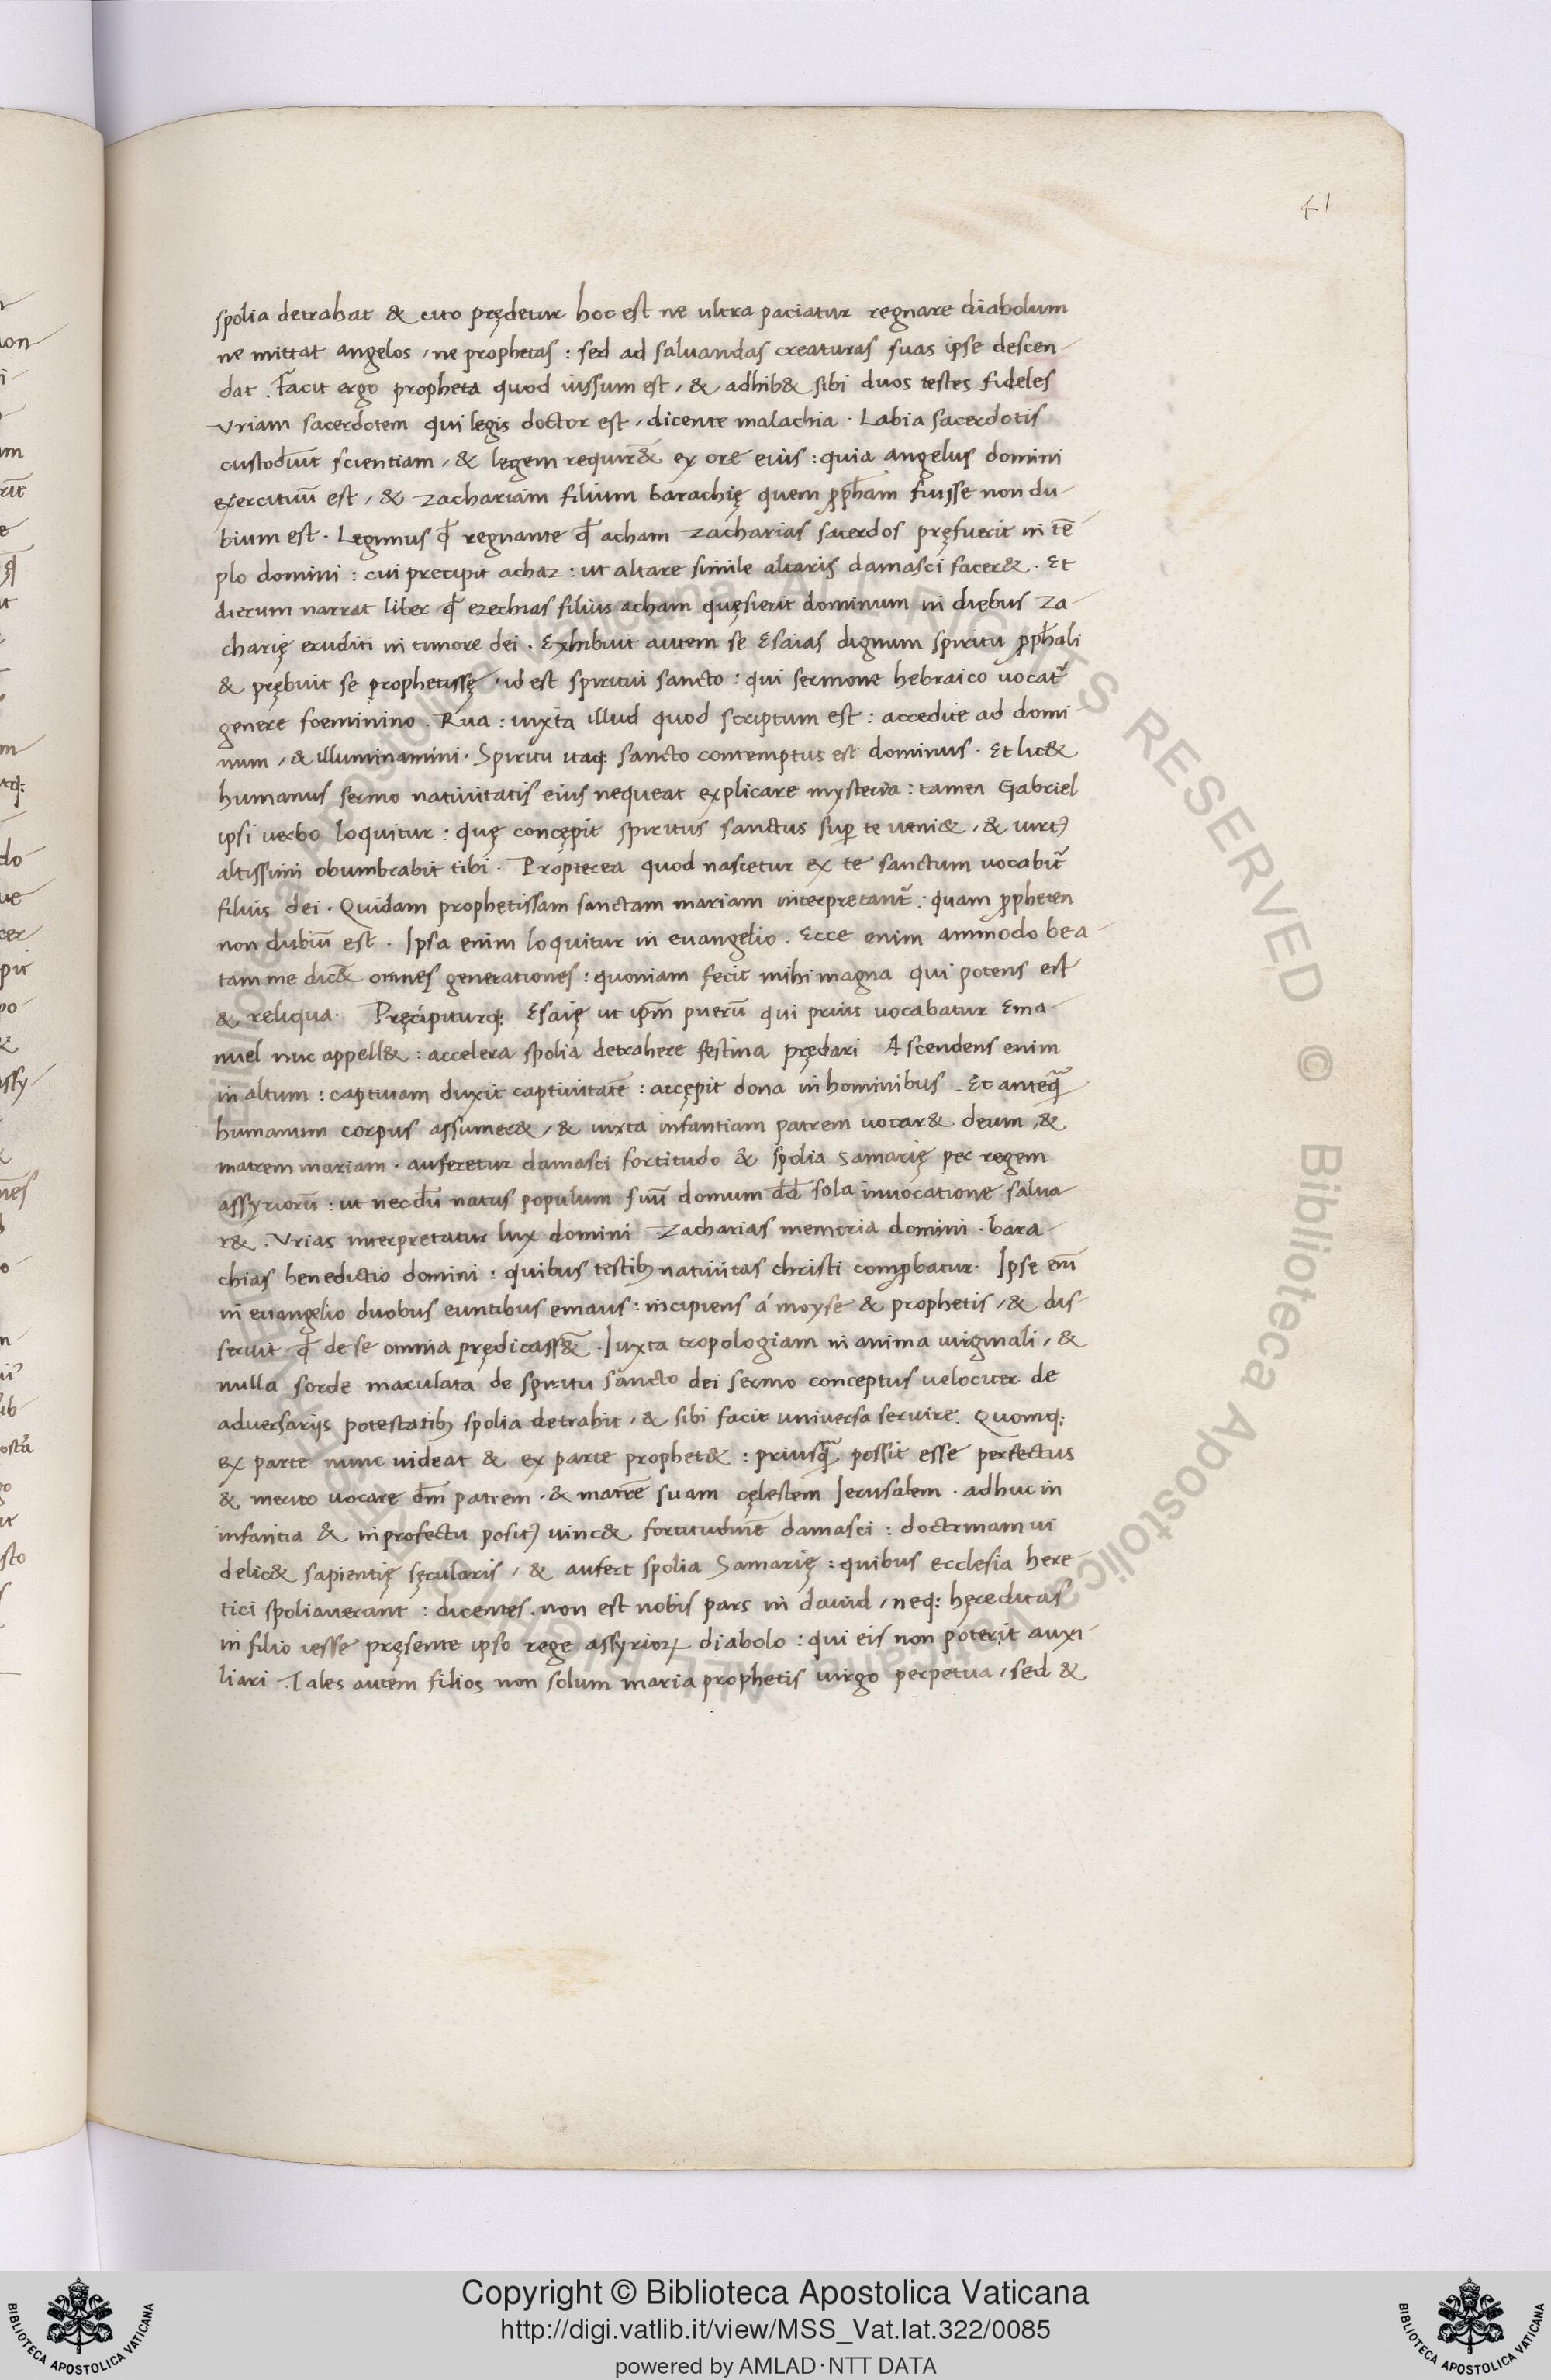 41
spolia detrahat & cito prędetur hoc est ne ultra paciatur regnare diabolum
ne mittat angelos, ne prophetas : sed ad saluandas creaturas suas ipse descen-
dat . Facit ergo propheta quod iussum est, & adhib& sibi duos testes fideles
Vriam sacerdotem qui legis doctor est, dicente malachia . Labia sacerdotis
custodiūt scientiam, & legem requir&̄ ex ore eius : quia angelus domini
exercituū est, & zachariam filium barachię quem ꝓph̄am fuisse non du-
bium est . Legimus ꝙ regnante ꝙ acham zacharias sacerdos pręfuerit in tē-
plo domini : cui precipit achaz : ut altare simile altaris damasci facer& . Et
dierum narrat liber ꝙ ezechias filius acham quęsierit dominum in diebus za-
charię eruditi in timore dei . Exhibuit autem se Esaias dignum spiritu ꝓph̄ali
& prębuit se prophetissę, id est spiritui sancto : qui sermone hebraico uocat᷑
genere foeminino . Rua : iuxta illud quod scriptum est : accedite ad domi-
num, & illuminamini . Spiritu itaq; sancto contemptus est dominus . Et lic&
humanus sermo natiuitatis eius nequeat explicare mysteria : tamen Gabriel
ipsi uerbo loquitur : quę concępit spiritus sanctus suꝑ te ueni&, & uirtꝰ
altissimi obumbrabit tibi . Propterea quod nascetur ex te sanctum uocabit᷑
filius dei . Quidam prophetissam sanctam mariam interpretant᷑ : quam ꝓpheten
non dubiū est . Ipsa enim loquitur in euangelio . Ecce enim ammodo bea-
tam me dic&̄ omnes generationes : quoniam fecit mihi magna qui potens est
& reliqua . Pręcipiturq; Esaię ut ip̄m puerū qui prius uocabatur Ema-
nuel nuc appell& : accelera spolia detrahere festina prędari . Ascendens enim
in altum : captiuam duxit captiuitatē : accępit dona in hominibus . Et anteq̄
humanum corpus assumer&, & iuxta infantiam patrem uocar& deum, &
matrem mariam . auferetur damasci fortitudo & spolia samarię per regem
assyriorū : ut necdū natus populum suū domum dd̄ sola inuocatione salua-
r& . Vrias interpretatur lux domini Zacharias memoria domini . bara-
chias benedictio domini : quibus testibꝫ natiuitas christi comꝓbatur . Ipse eni̅
in euangelio duobus euntibus emaus : incipiens á moyse & prophetis, & dis-
seruit ꝙ de se omnia prędicass&̄ . Iuxta tropologiam in anima uirginali, &
nulla sorde maculata de spiritu sancto dei sermo conceptus uelociter de
aduersarijs potestatibꝫ spolia detrahit, & sibi facit uniuersa seruire . Quomq;
ex parte nunc uideat & ex parte prophet& : priusq̄ possit esse perfectus
& merito uocare dm̄ patrem . & matrē suam cęlestem Ierusalem . adhuc in
infantia & in profectu positꝰ uinc& fortitudinē damasci : doctrinam ui
delic& sapientię sęcularis, & aufert spolia Samarię : quibus ecclesia here-
tici spoliauerant : dicentes . non est nobis pars in dauid, neq; hęreditas
in filio iesse pręsente ipso rege assyrioꝝ diabolo : qui eis non poterit auxi-
liari . Tales autem filios non solum maria prophetis uirgo perpetua, sed &
Copyright © Biblioteca Apostolica Vaticana
http://digi.vatlib.it/view/MSS_Vat.lat.322/0085
powered by AMLAD·NTT DATA